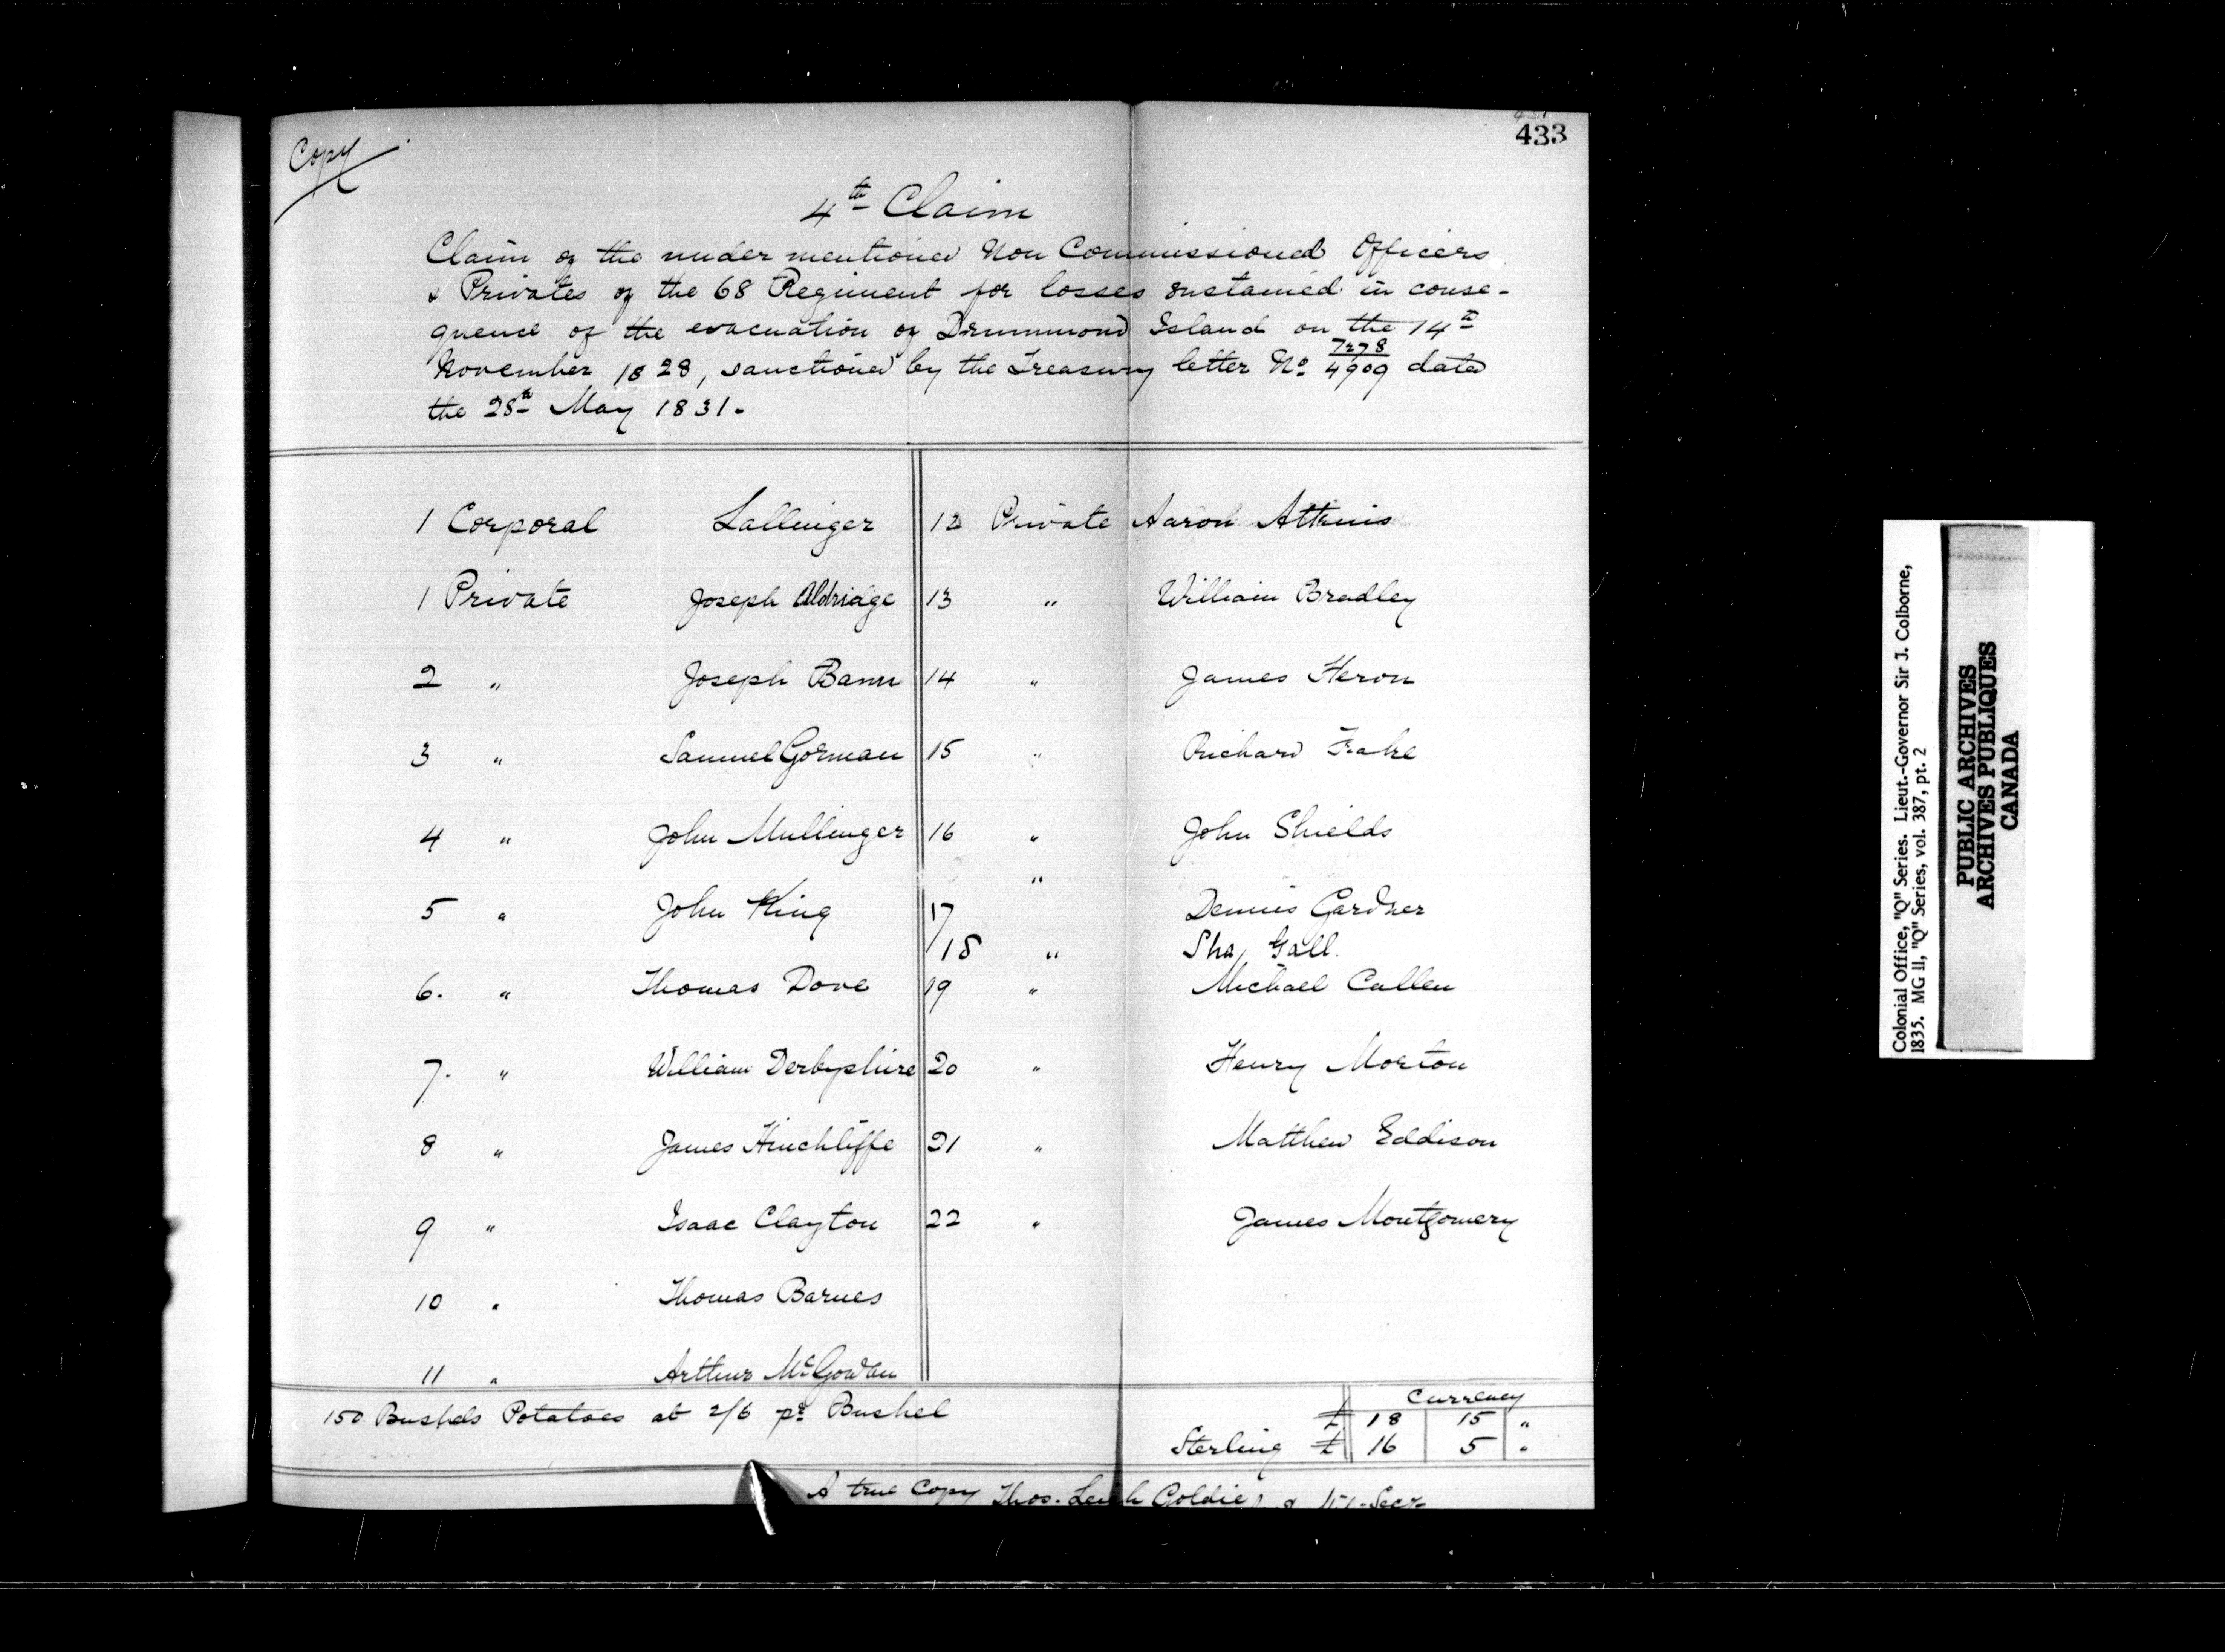 433
Copy
4th Claim
Claim of the under mentioned Non Commissioned Officers
& Privates of the 68 Regiment for losses sustained in conse-
quence of the evacuation of Drummond Island on the 14th
November 1828, sanctioned by the Treasury letter No 7278/4909 dated
the 28th May 1831.
1 Corporal Lallinger
1 Private Joseph Aldridge
2 " Joseph Bann
3 " Samuel Gorman
4 " John Mullinger
5 " John King
6. " Thomas Dove
7. " William Derbyshire
8 " James Hinchliffe
9 " Isaac Clayton
10 " Thomas Barnes
11 " Arthur McGowan
12 Private Aaron Atkins
13 " William Bradley
14 " James Heron
15 " Richard
16 " John Shields
17 " Dennis Gardner
18 " Sha, Gall.
19 " Michael Cullen
20 " Henry Morton
21 " Matthew Eddison
22 " James Montgomery
150 Bushels Potatoes at 2/6 pr Bushel
Currency
£ 18 15 "
Sterling £ 16 5 "
A true Copy Thos. Leigh Goldie Secy
Colonial Office, "Q" Series. Lieut.-Governor Sir J. Colborne,
1835. MG 11, "Q" Series, vol. 387, pt. 2
PUBLIC ARCHIVES
ARCHIVES PUBLIQUES
CANADA